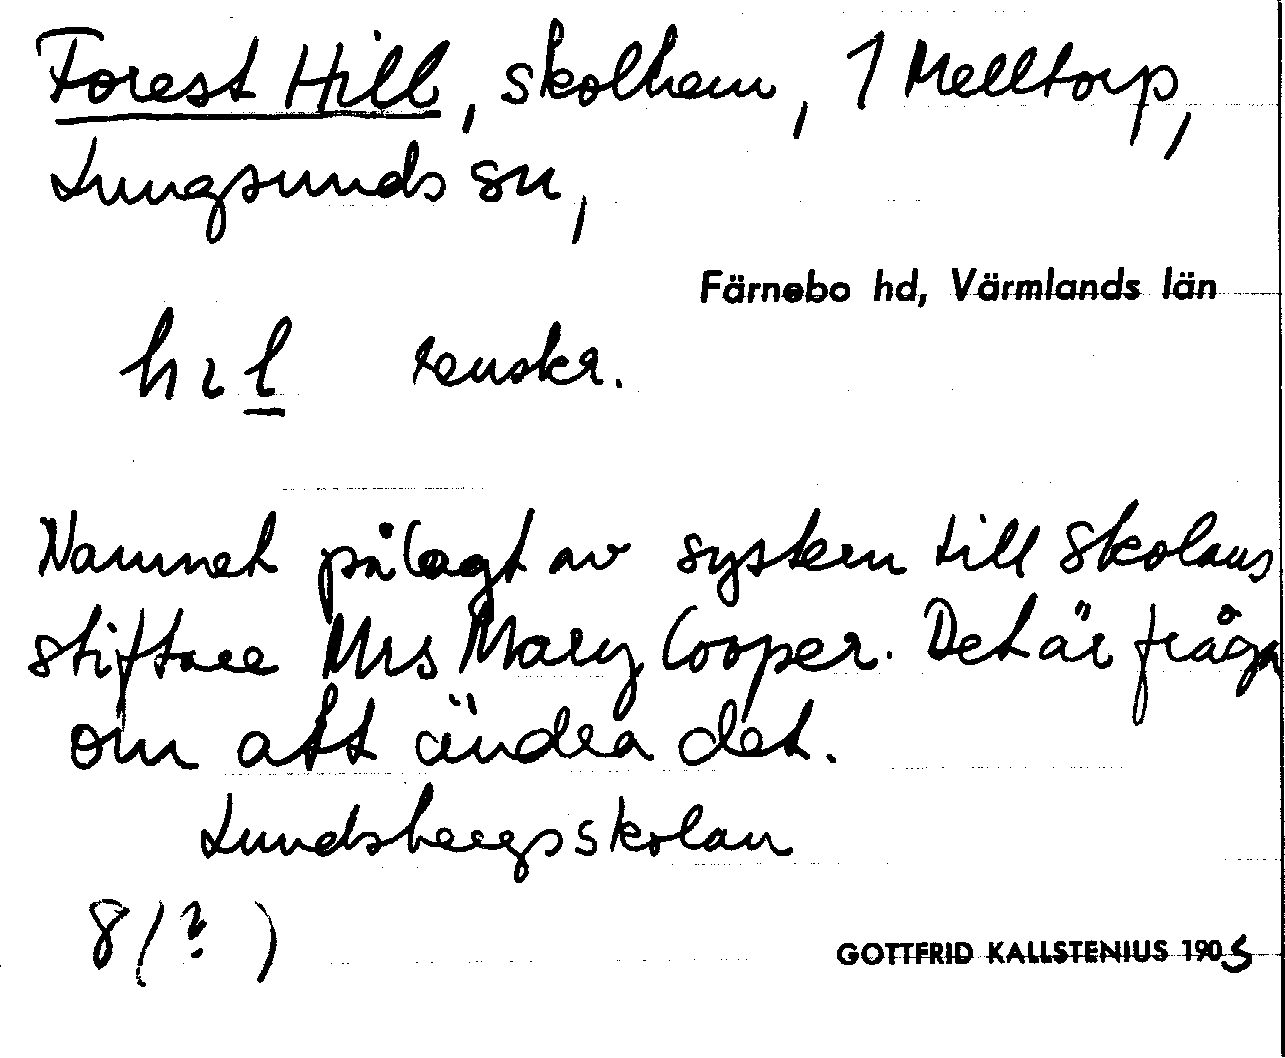 Forest Hill, skolhem, 1 Melltorp,
Lungsunds sn,
Färnebo hd, Värmlands län
hɩl renskr.
Namnet pålagt av system till skolans
stiftare Mrs Mary Cooper. Det är fråga
om att ändra det.
Lundsbergsskolan
8 (? )
GOTTFRID KALLSTENIUS 1905